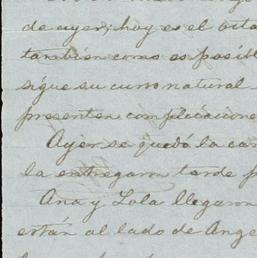 de ayer; hoy es el octa
también como es posibl
sigue su curso natural
presentan complicacione
Ayer se quedó la car
la entregaron tarde p
Ana y Lola llegaron
están al lado de Ange